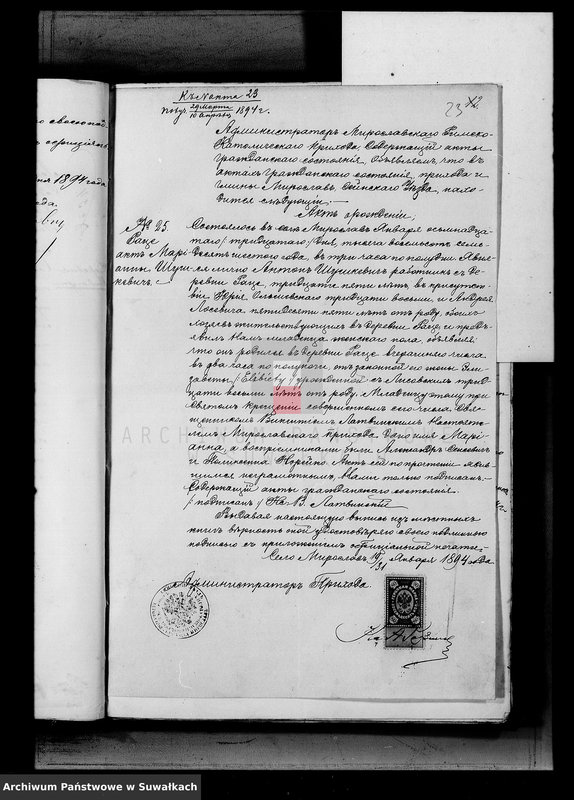 Къ № акта 23
пог. 29 Марта
10 Апрѣля 1894 г.
23
Администраторъ Мирославскаго Римско-
Католическаго прихода, Содержащій акты
гражданскаго состоянія, объявляетъ, что въ
актахъ гражданскаго состоянія, прихода и
гмины Мирославъ, Сейнскаго Уѣзда, нахо-
дится слѣдующій:
Актъ о рожденіи;
№ 25.
Раце
актъ Марі-
анны Шуш-
кевичъ.
Состоялось въ селѣ Мирославъ Января осьмнадца-
таго /тридцатаго/ дня, тысяча восемьсотъ семь-
десятъ шестого года, въ три часа по полудни. Явил-
ся лично Антонъ Шушкевичъ работникъ съ де-
ревни Раце, тридцати пяти лѣтъ, въ присутст-
віи Юрія тридцати восьми, и Андрея
пятидесяти пяти лѣтъ отъ роду, обоихъ
жительствующихъ въ деревни Раце, и предъ-
явилъ Намъ младенца женскаго пола, объявляя
что онъ родился въ деревни Раце вчерашняго числа
въ два часа по полуночи, отъ законной его жены Ели-
заветы /Elżbiety/ урожденной съ Лисовскихъ трид-
цати восьми лѣтъ отъ роду. Младенцу этому при
Святомъ Крещеніи совершенномъ сего числа, Свя-
щенникомъ Викентіемъ Латвинскимъ Настояте-
лемъ Мирославскаго прихода дано имя Марі-
анна, а воспріемниками были Александръ
и Норейко. Актъ сей по прочтеніи явля-
ющимся неграмотнымъ, Нами только подписанъ.
Содержащій акты гражданскаго состоянія.
/подписалъ/ Кс. В. Латвинскій
Выдавая настоящую выпись изъ метрическихъ
книгъ вѣрность оной удостовѣряю своею подлинною
подписью съ приложеніемъ оффиціальной печати.
Село Мирославъ 19/31 Января 1894 года
Администраторъ Прихода
Archiwum Państwowe w Suwałkach